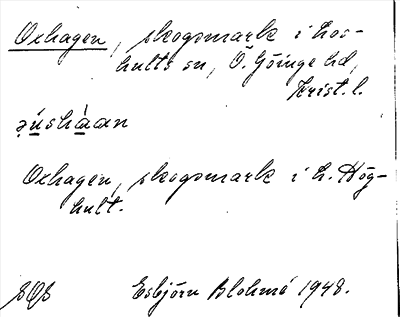 Oxhagen, skogsmark i Los-
hults sn, Ö. Göinge hd,
Krist. l.
Oxhagen, skogsmark i h. Hög-
hult.
Esbjörn Blohmé 1948.